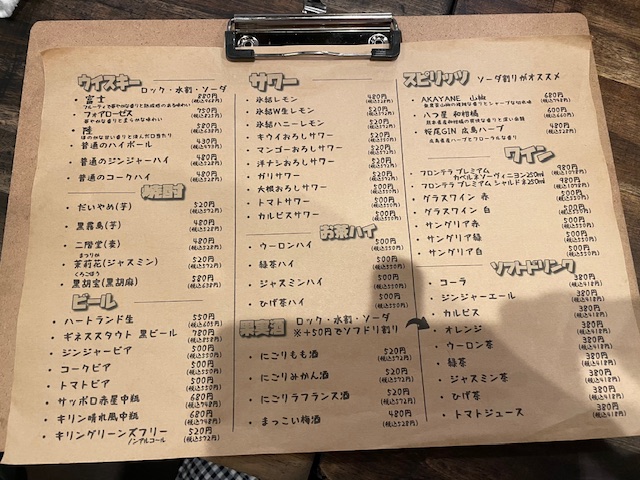 ウイスキー ロック・水割・ソーダ
・富士 880円
(税込968円)
フルーティで華やかな香りと熟成感のある味わい
・フォアローゼス 750円
(税込825円)
華やかな香りと柔らかな味わい
・陸 580円
(税込638円)
ほのかな甘い香りとほんだ口当たり
・普通のハイボール 430円
(税込473円)
・普通のジンジャーハイ 480円
(税込528円)
・普通のコークハイ 480円
(税込528円)
焼酎
・だいやめ(芋) 520円
(税込572円)
・黒霧島(芋) 480円
(税込528円)
・二階堂(麦) 480円
(税込528円)
まつりか
・茉莉花(ジャスミン) 520円
(税込572円)
くろごほう
・黒胡宝(黒胡麻) 580円
(税込638円)
ビール
・ハートランド生 550円
(税込605円)
・ギネススタウト 黒ビール 780円
(税込858円)
・ジンジャービア 500円
(税込550円)
・コークビア 500円
(税込550円)
・トマトビア 500円
(税込550円)
・サッポロ赤星中瓶 680円
(税込748円)
・キリン晴れ風中瓶 680円
(税込748円)
・キリングリーンズフリー 520円
ノンアルコール (税込572円)
サワー
・氷結レモン 480円
(税込528円)
・氷結W生レモン 520円
(税込572円)
・氷結ハニーレモン 520円
(税込572円)
・キウイおろしサワー 520円
(税込572円)
・マンゴーおろしサワー 520円
(税込572円)
・洋ナシおろしサワー 520円
(税込572円)
・ガリサワー 520円
(税込572円)
・大根おろしサワー 500円
(税込550円)
・トマトサワー 500円
(税込550円)
・カルピスサワー 520円
(税込572円)
お茶ハイ
・ウーロンハイ 500円
(税込550円)
・緑茶ハイ 500円
(税込550円)
・ジャスミンハイ 500円
(税込550円)
・ひげ茶ハイ 500円
(税込550円)
果実酒 ロック・水割・ソーダ
※+50円でソフドリ割り
・にごりもも酒 520円
(税込572円)
・にごりみかん酒 520円
(税込572円)
・にごりラフランス酒 520円
(税込572円)
・まっこい梅酒 480円
(税込528円)
スピリッツ ソーダ割りがオススメ
・AKAYANE 山椒 680円
(税込748円)
・八つ星 和柑橘 600円
(税込660円)
・桜尾GIN 広島ハーブ 480円
(税込528円)
広島県産ハーブとフローラルな香り
ワイン
・フロンテラ プレミアム 980円
カベルネソーヴィニヨン250ml (税込1078円)
・フロンテラ プレミアム シャルドネ250ml 980円
(税込1078円)
・グラスワイン 赤 500円
(税込550円)
・グラスワイン 白 500円
(税込550円)
・サングリア赤 500円
(税込550円)
・サングリア緑 500円
(税込550円)
・サングリア白 500円
(税込550円)
ソフトドリンク
・コーラ 380円
(税込418円)
・ジンジャーエール 380円
(税込418円)
・カルピス 380円
(税込418円)
・オレンジ 380円
(税込418円)
・ウーロン茶 380円
(税込418円)
・緑茶 380円
(税込418円)
・ジャスミン茶 380円
(税込418円)
・ひげ茶 380円
(税込418円)
・トマトジュース 380円
(税込418円)